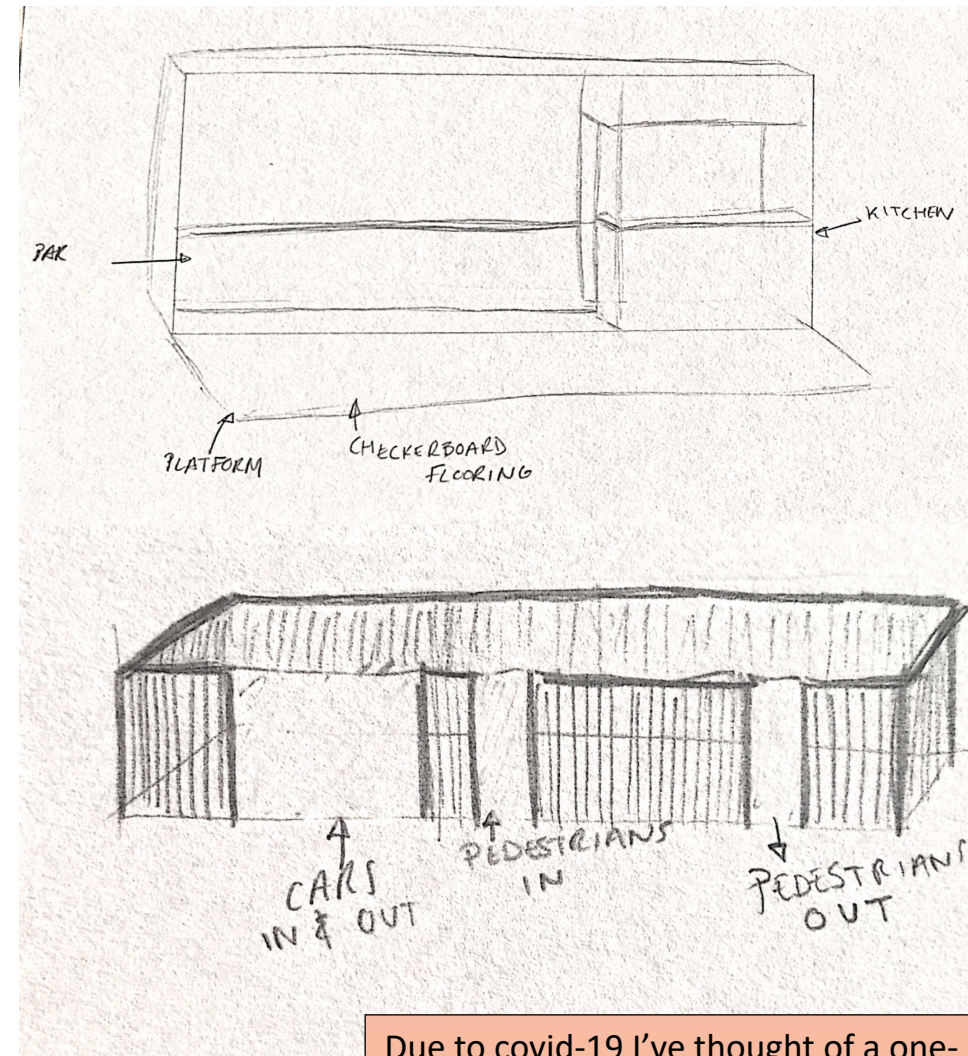 KITCHEN
BAR
PLATFORM
CHECKERBOARD
FLOORING
CARS
IN & OUT
PEDESTRIANS
IN
PEDESTRIANS
OUT
Due to covid-19 I've thought of a one-